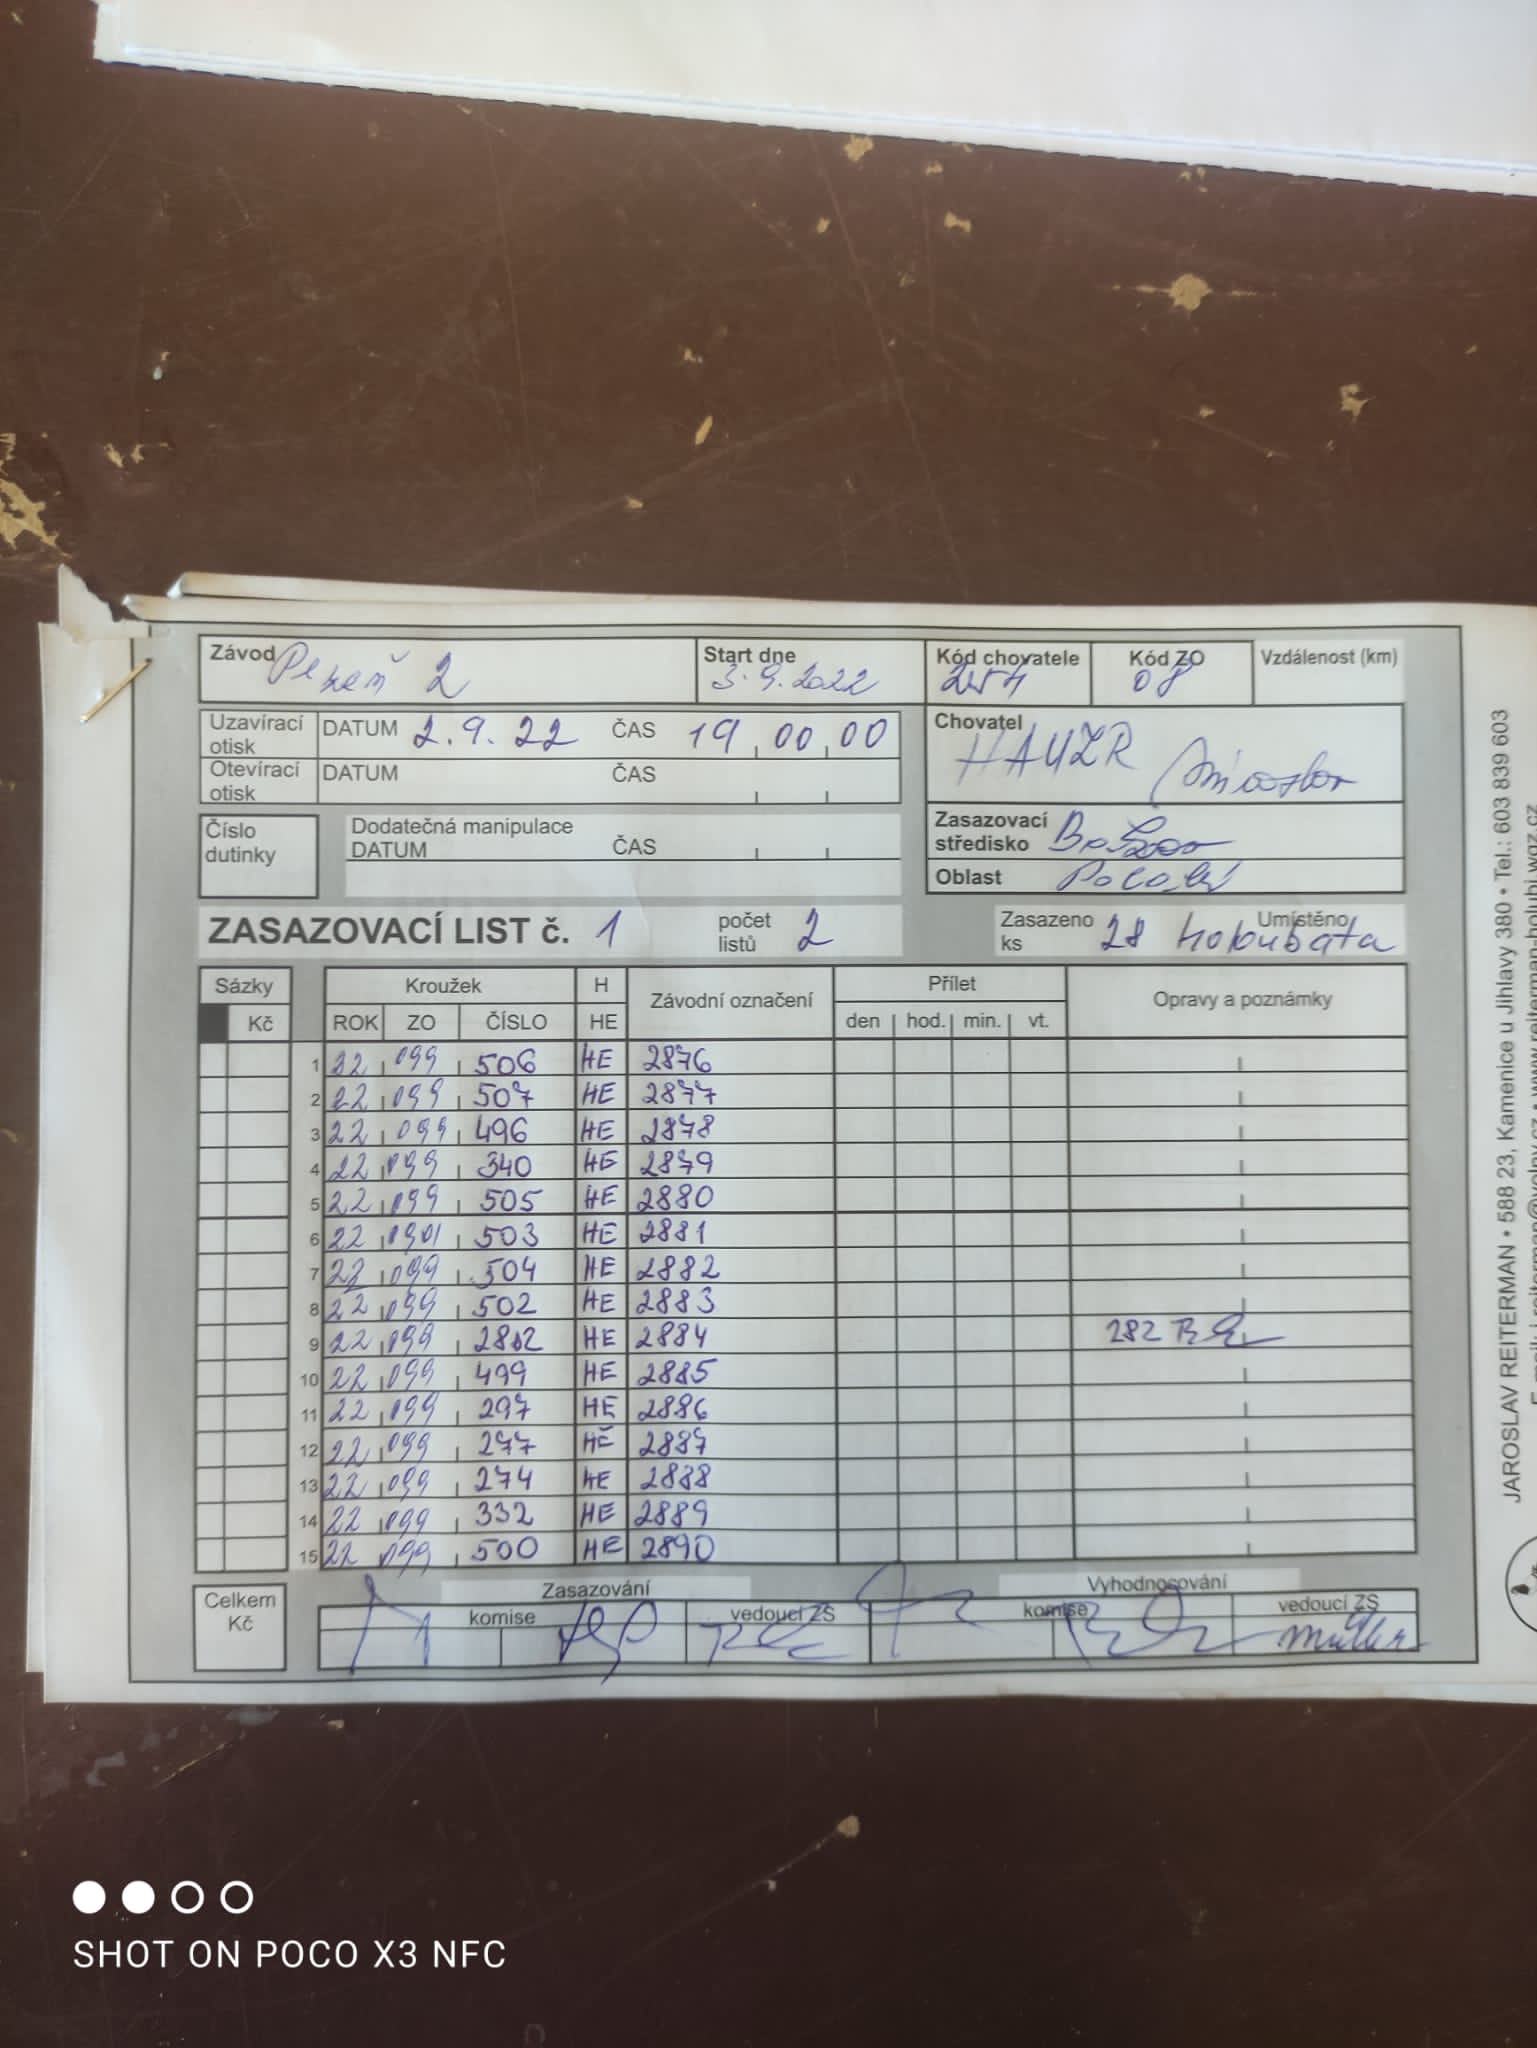 Závod Plzeň 2 Start dne 3.9.2022 Kód chovatele 254 Kód ZO 08 Vzdálenost (km)
Uzavírací otisk DATUM 2.9.22 ČAS 19 00 00
Chovatel HAUZR Miroslav
Otevírací otisk DATUM ČAS
Číslo dutinky Dodatečná manipulace DATUM ČAS
Zasazovací středisko
Oblast
ZASAZOVACÍ LIST č. 1 počet listů 2 Zasazeno ks 28 holoubata Umístěno
Sázky Kroužek H Závodní označení Přílet Opravy a poznámky
Kč ROK ZO ČÍSLO HE den hod. min. vt.
1 22 099 506 HE 2876
2 22 099 507 HE 2877
3 22 099 496 HE 2878
4 22 099 340 HE 2879
5 22 099 505 HE 2880
6 22 0901 503 HE 2881
7 22 099 504 HE 2882
8 22 099 502 HE 2883
9 22 099 282 HE 2884 282
10 22 099 499 HE 2885
11 22 099 297 HE 2886
12 22 099 277 HE 2887
13 22 099 274 HE 2888
14 22 099 332 HE 2889
15 22 099 500 HE 2890
Celkem Kč Zasazování Vyhodnocování
komise vedoucí ZS komise vedoucí ZS
Müller
JAROSLAV REITERMAN • 588 23, Kamenice u Jihlavy 380 • Tel.: 603 839 603
SHOT ON POCO X3 NFC